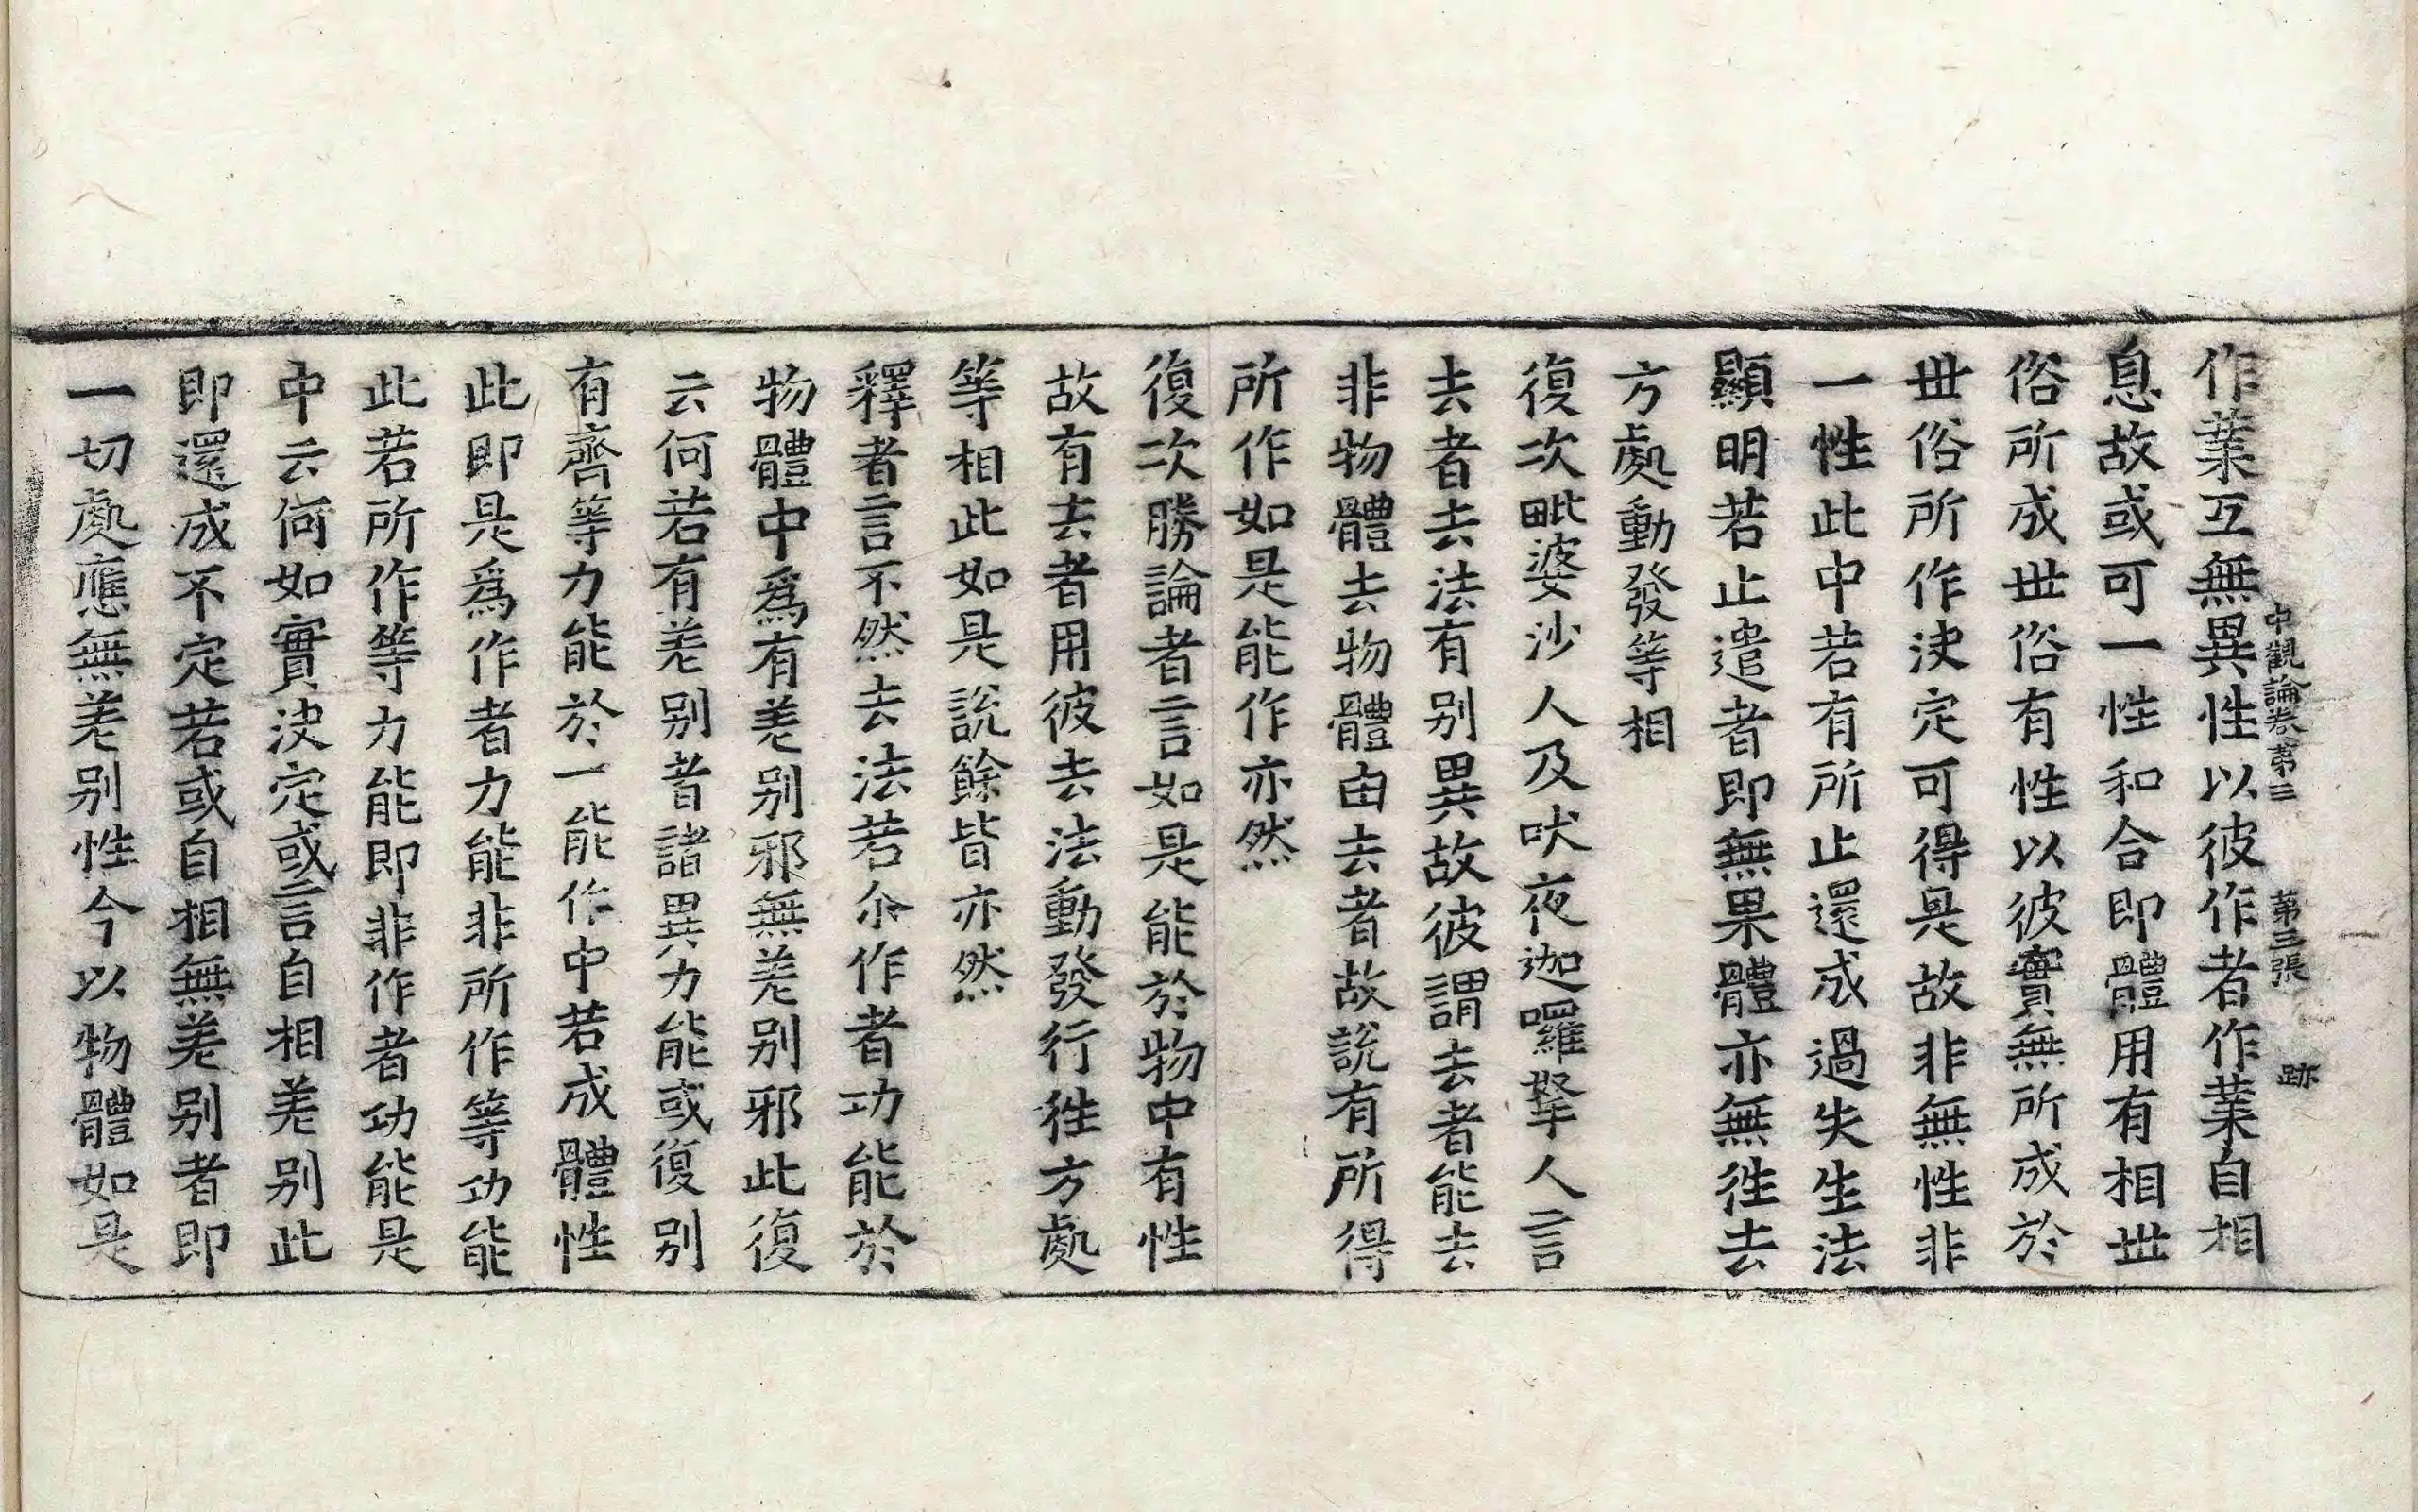 中觀論卷第三　第三張　跡
作業互無異性以彼作者作業自相
息故或可一性和合即體用有相世
俗所成世俗有性以彼實無所成於
世俗所作決定可得是故非無性非
一性此中若有所止還成過失生法
顯明若止遣者即無果體亦無徃去
方處動發等相
復次毗婆沙人及吠夜迦囉拏人言
去者去法有別異故彼謂去者能去
非物體去物體由去者故說有所得
所作如是能作亦然
復次勝論者言如是能於物中有性
故有去者用彼去法動發行徃方處
等相此如是說餘皆亦然
釋者言不然去法若尒作者功能於
物體中爲有差別邪無差別邪此復
云何若有差別者諸異力能或復別
有齊等力能於一能作中若成體性
此即是爲作者力能非所作等功能
此若所作等力能即非作者功能是
中云何如實決定或言自相差別此
即還成不定若或自相無差別者即
一切處應無差別性今以物體如是